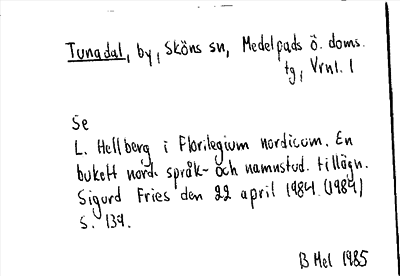 Tunadal, by, Sköns sn, Medelpads ö. doms.
tg, Vrnl. 1
Se
L. Hellberg i Florilegium nordicum. En
bukett nord. språk- och namnstud. tillägn.
Sigurd Fries den 22 april 1984. (1984)
S. 134.
B Hel 1985